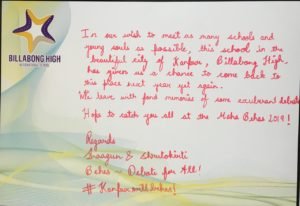 BILLABONG HIGH
INTERNATIONAL SCHOOL
In our wish to meet as many schools and
young souls as possible, this school in the
beautiful city of Kanpur, Billabong High.
has given us a chance to come back to
this place next year yet again.
We leave with fond memories of some exuberant debate
Hope to catch you all at the Maha Behas 2019!
Regards
&
Behas - Debate for All!